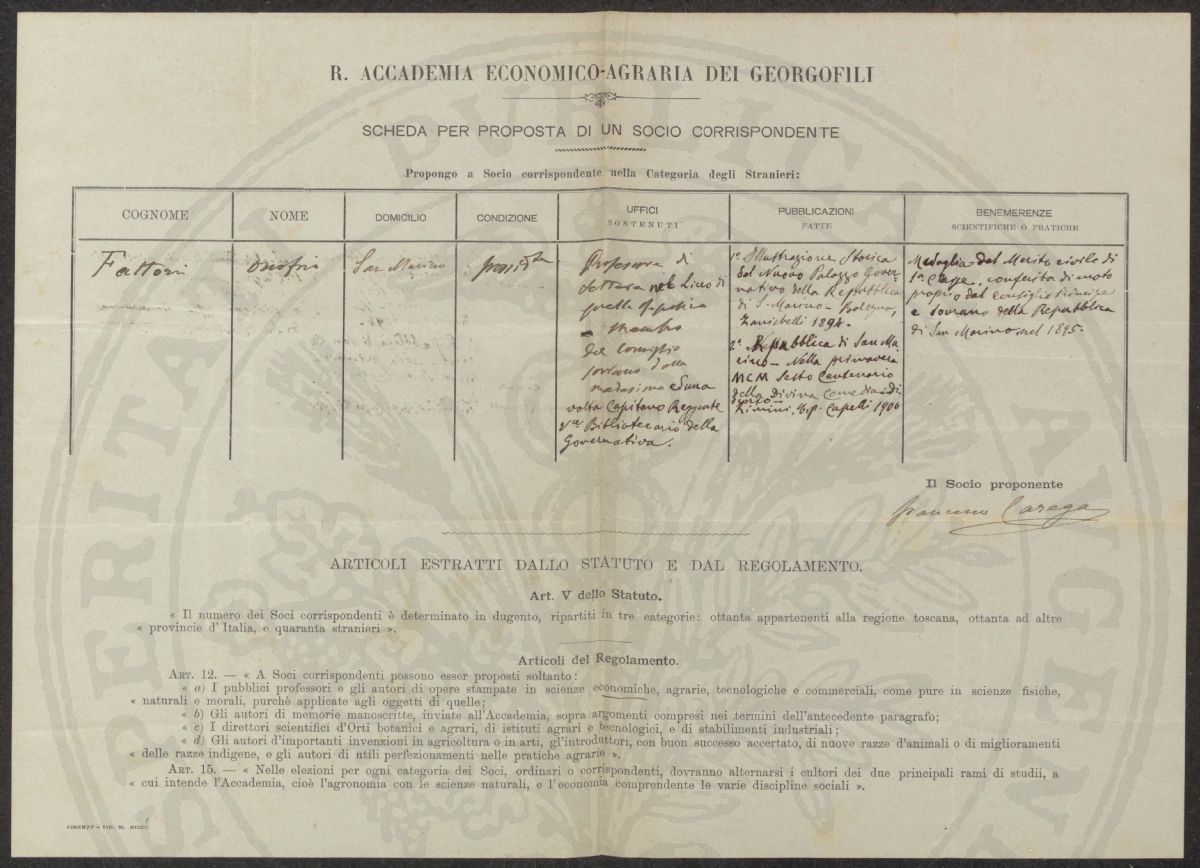 R. ACCADEMIA ECONOMICO-AGRARIA DEI GEORGOFILI
SCHEDA PER PROPOSTA DI UN SOCIO CORRISPONDENTE
Propongo a Socio corrispondente nella Categoria degli Stranieri:
COGNOME
NOME
DOMICILIO
CONDIZIONE
UFFICI
SOSTENUTI
PUBBLICAZIONI
FATTE
BENEMERENZE
SCIENTIFICHE O PRATICHE
Fattori
Onofrio
San Marino
possidte
Professore di
lettere nel Liceo di
quella
Membro
del Consiglio
sovrano della
medesima ed una
volta Capitano Reggente
Bibliotecario della
Governativa.
1° Illustrazione Storica
del Nuovo Palazzo Gover-
nativo della Repubblica
di S. Marino - Bologna,
Zanichelli 1894.
2° Repubblica di San Ma
rino - Nella primavera
MCM Sesto Centenario
della Divina Comedia - Di
scorso -
Rimini, tip. Capelli 1900
Medaglia del Merito civile di
1a Classe, conferita di moto
proprio dal Consiglio Principe
e Sovrano della Repubblica
di San Marino, nel 1895.
Il Socio proponente
Francesco Carega
ARTICOLI ESTRATTI DALLO STATUTO E DAL REGOLAMENTO.
Art. V dello Statuto.
« Il numero dei Soci corrispondenti è determinato in dugento, ripartiti in tre categorie: ottanta appartenenti alla regione toscana, ottanta ad altre
« provincie d'Italia, e quaranta stranieri ».
Articoli del Regolamento.
ART. 12. — « A Soci corrispondenti possono esser proposti soltanto:
« a) I pubblici professori e gli autori di opere stampate in scienze economiche, agrarie, tecnologiche e commerciali, come pure in scienze fisiche,
« naturali e morali, purchè applicate agli oggetti di quelle;
« b) Gli autori di memorie manoscritte, inviate all'Accademia, sopra argomenti compresi nei termini dell'antecedente paragrafo;
« c) I direttori scientifici d'Orti botanici e agrari, di istituti agrari e tecnologici, e di stabilimenti industriali;
« d) Gli autori d'importanti invenzioni in agricoltura o in arti, gl'introduttori, con buon successo accertato, di nuove razze d'animali o di miglioramenti
« delle razze indigene, e gli autori di utili perfezionamenti nelle pratiche agrarie ».
ART. 15. — « Nelle elezioni per ogni categoria dei Soci, ordinari o corrispondenti, dovranno alternarsi i cultori dei due principali rami di studii, a
« cui intende l'Accademia, cioè l'agronomia con le scienze naturali, e l'economia comprendente le varie discipline sociali ».
FIRENZE - TIP. M. RICCI